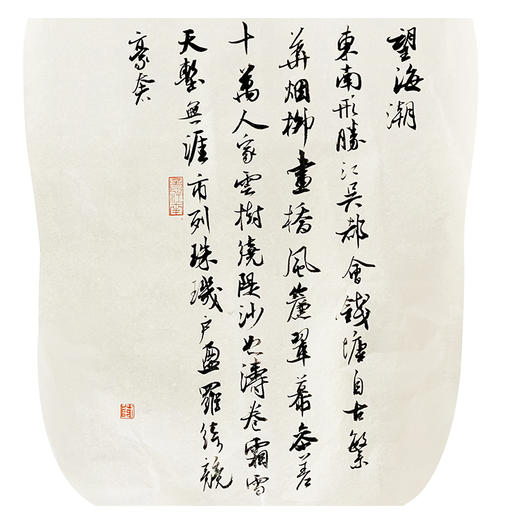 望海潮
東南形勝江吳都會錢塘自古繁
華烟柳畫橋風簾翠幕參差
十萬人家雲樹繞隄沙怒濤卷霜雪
天塹無涯市列珠璣戶盈羅綺競
豪奢